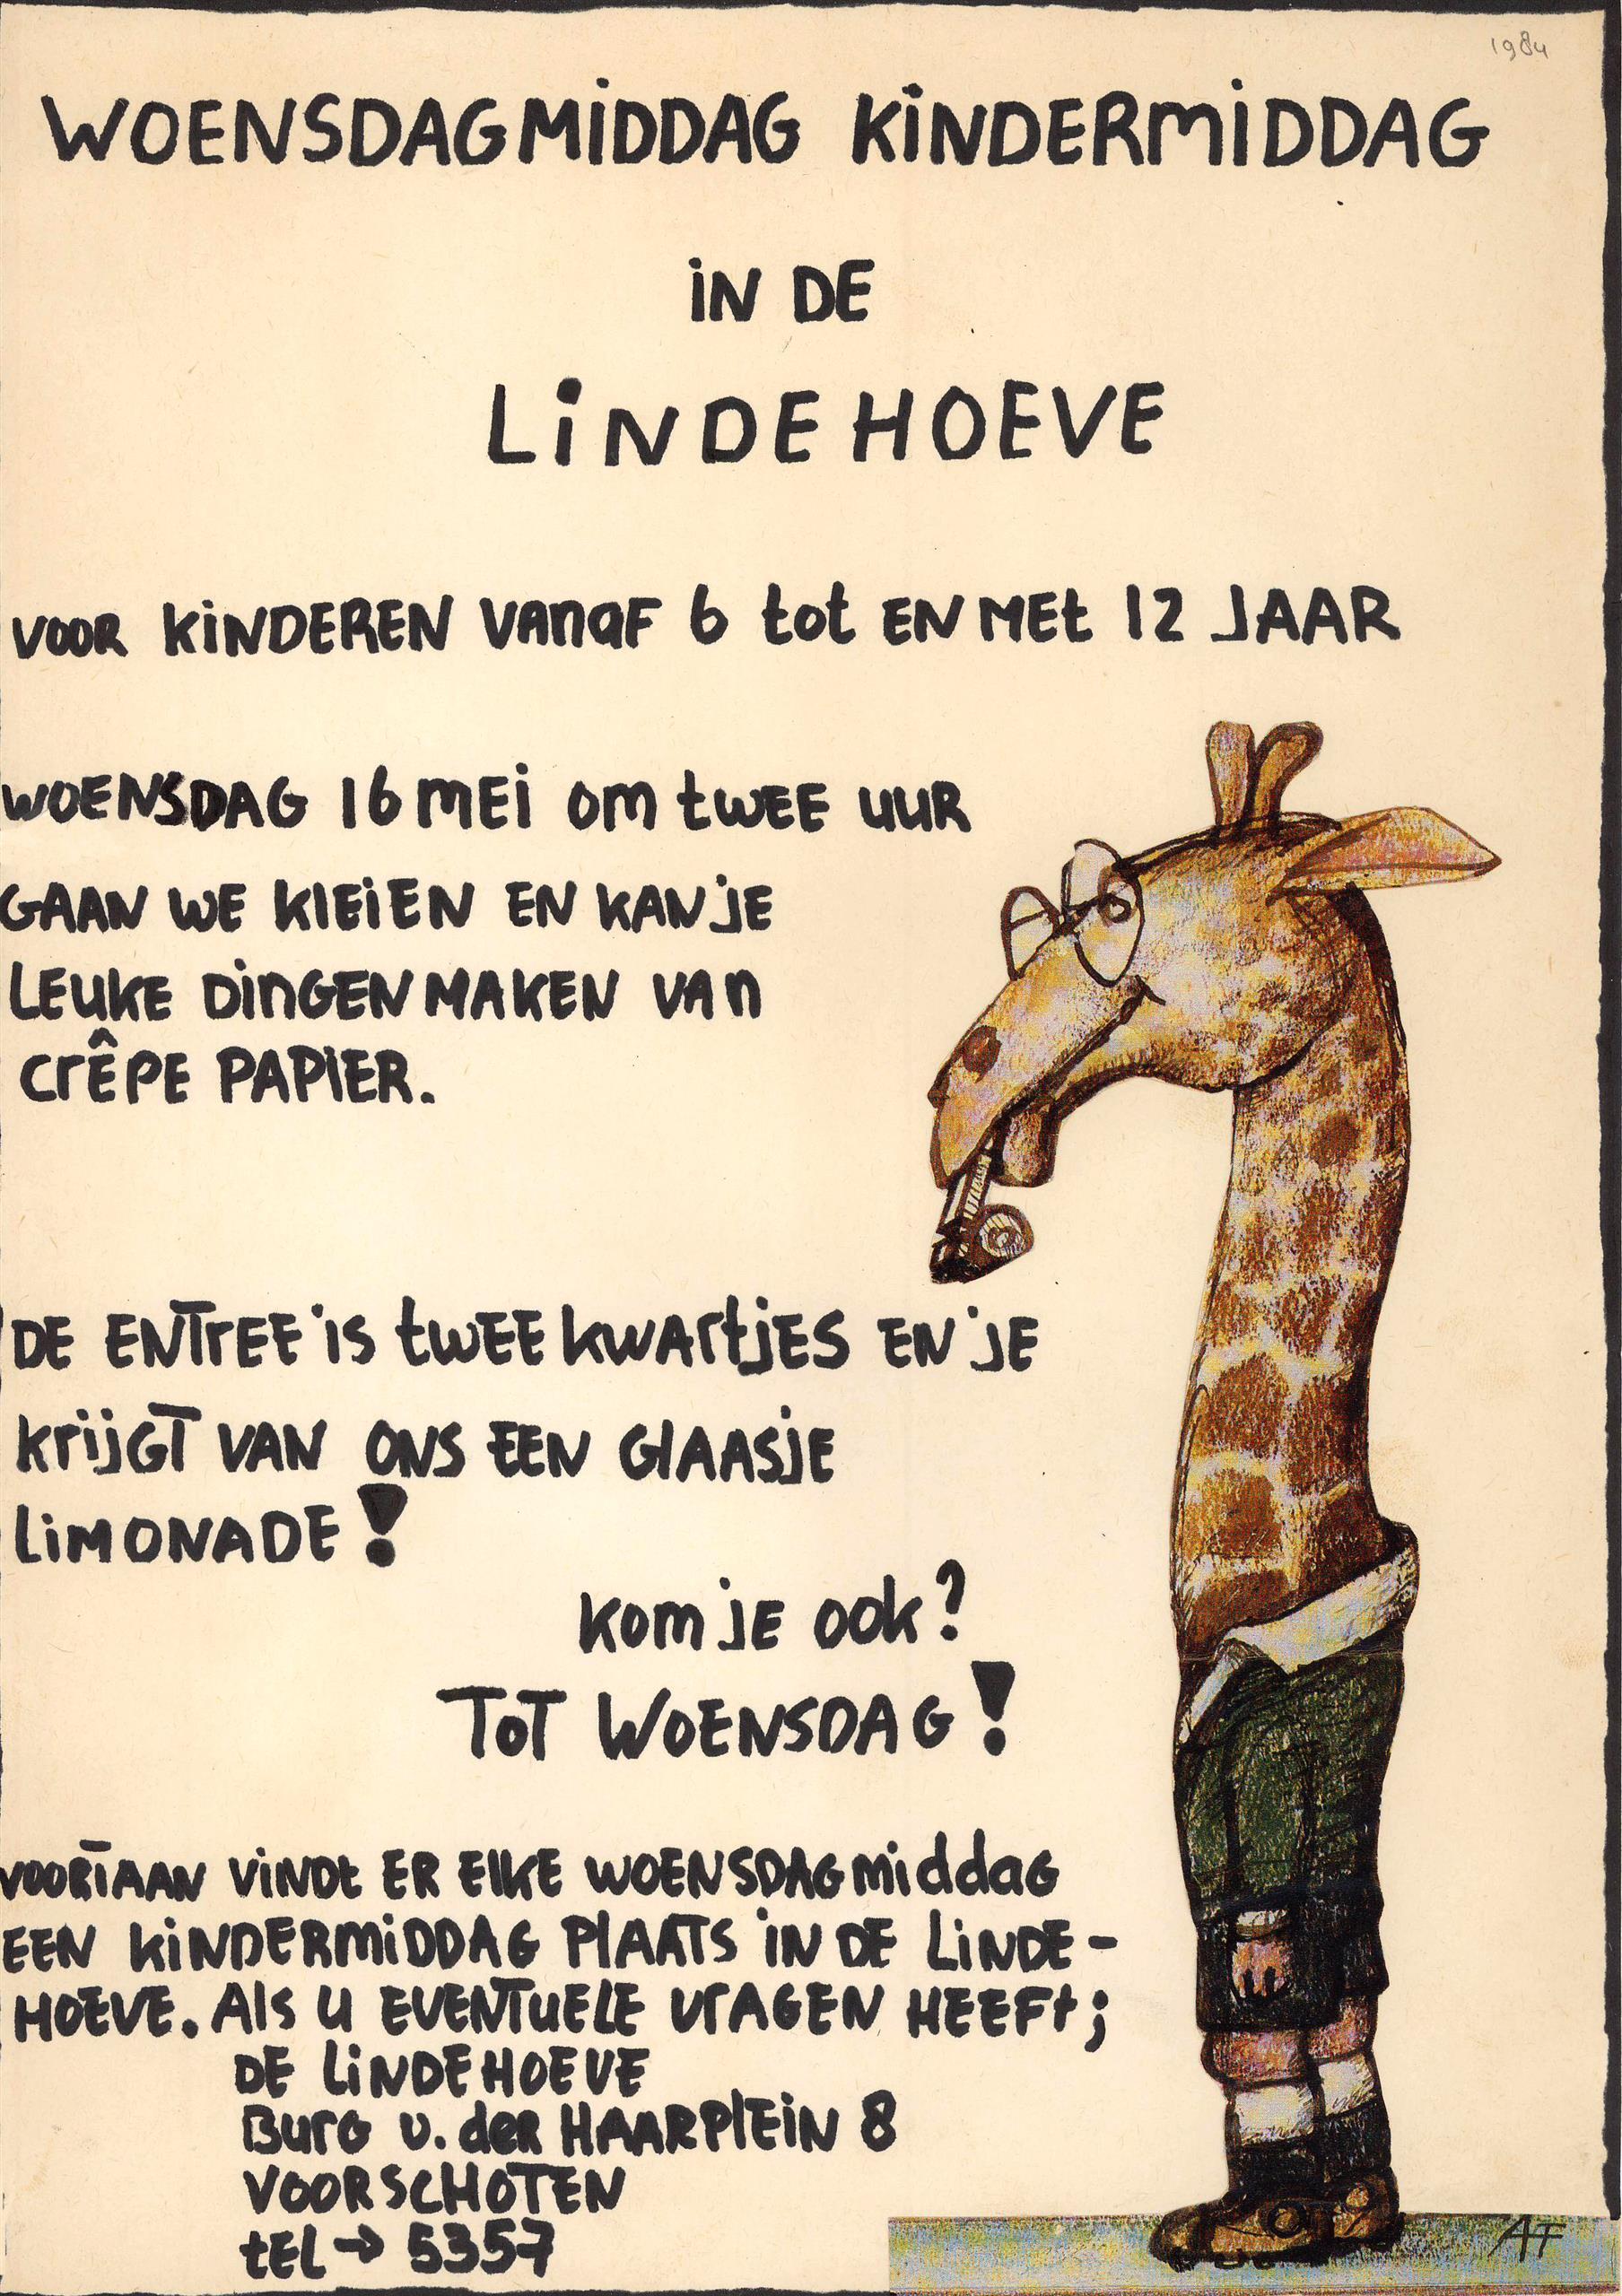 1984
WOENSDAGMIDDAG KINDERMIDDAG
IN DE
LINDEHOEVE
VOOR KINDEREN VANAF 6 tot EN MET 12 JAAR
WOENSDAG 16 MEI om twEE UUR
GAAN WE KLEIEN EN KAN JE
LEUKE DINGEN MAKEN VAN
CRÊPE PAPIER.
DE ENTREE IS twEE kwARtjES EN JE
KRIJGT VAN ONS EEN GLAASJE
LIMONADE!
Kom JE ook?
TOT WOENSDAG!
VOORTAAN VINDt ER ELKE WOENSDAGmiddaG
EEN KINDERMIDDAG PLAATS IN DE LINDE-
HOEVE. ALS U EVENTUELE VRAGEN HEEFt;
DE LINDEHOEVE
BURG v. deR HAARPLEIN 8
VOORSCHOTEN
tEL → 5357
AT